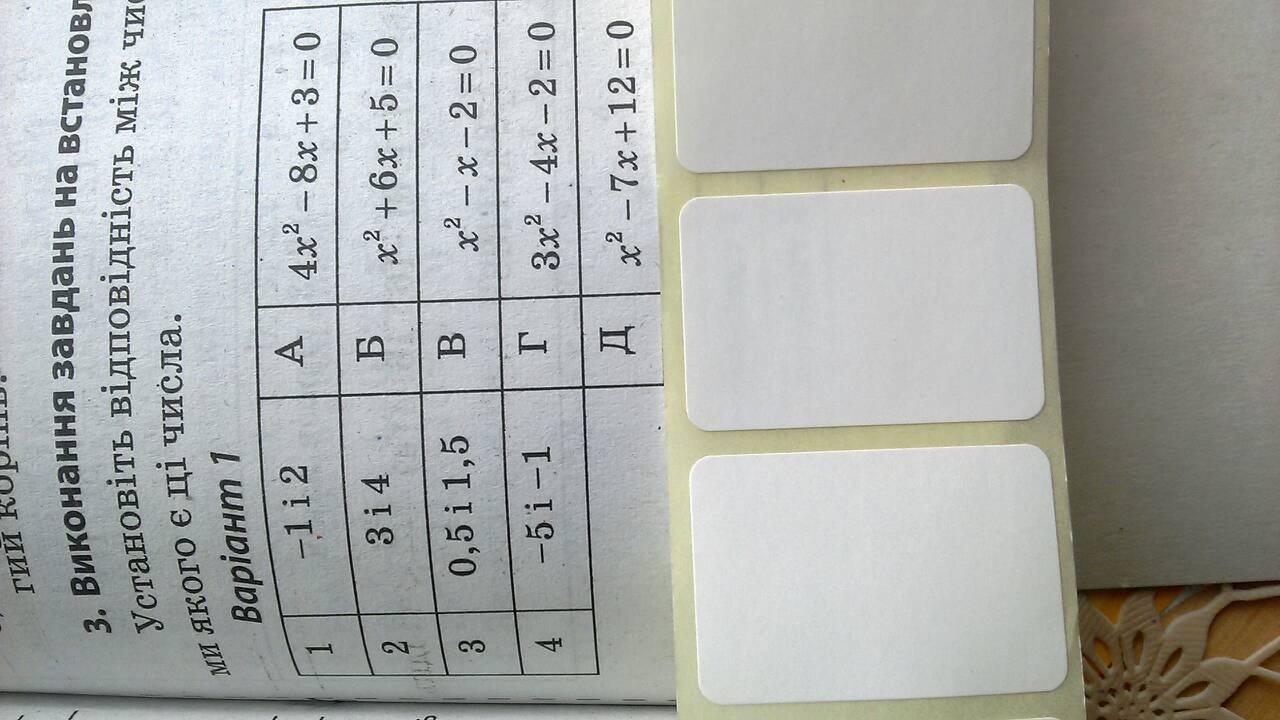 гий корінь.
3. Виконання завдань на встановл
Установіть відповідність між чис
ми якого є ці числа.
Варіант 1
1 −1 і 2 А 4x² − 8x + 3 = 0
2 3 і 4 Б x² + 6x + 5 = 0
3 0,5 і 1,5 В x² − x − 2 = 0
4 −5 і −1 Г 3x² − 4x − 2 = 0
Д x² − 7x + 12 = 0